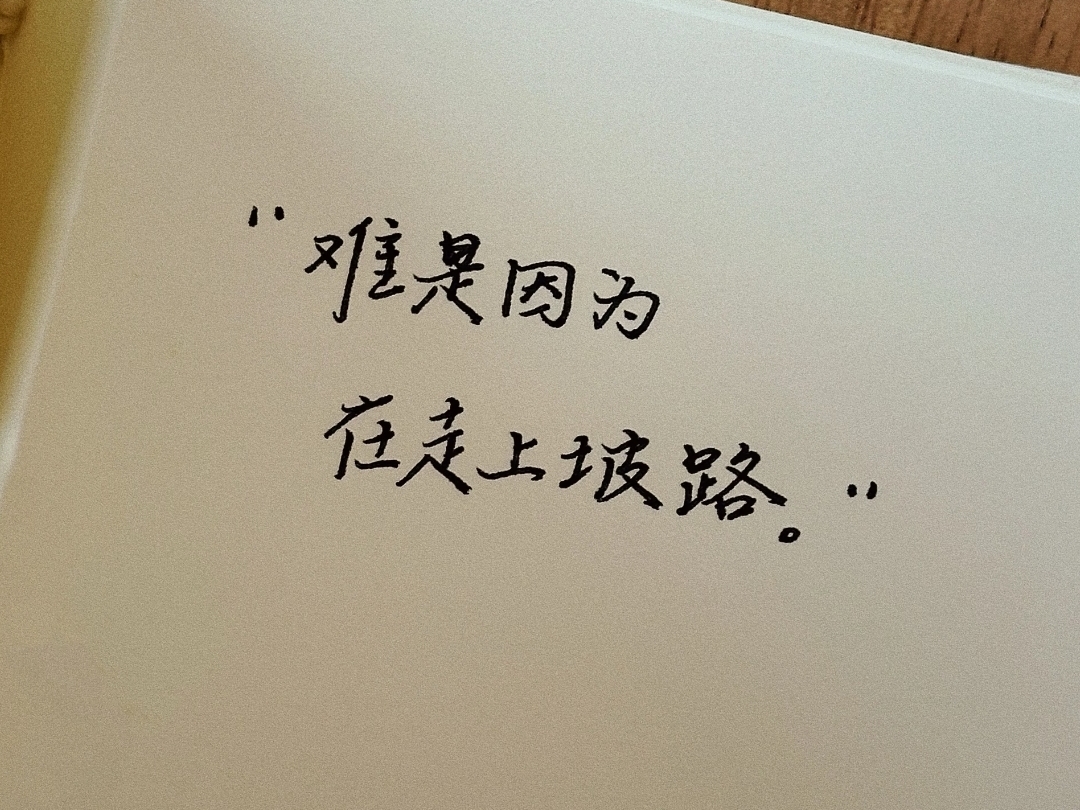 "难是因为
在走上坡路。"